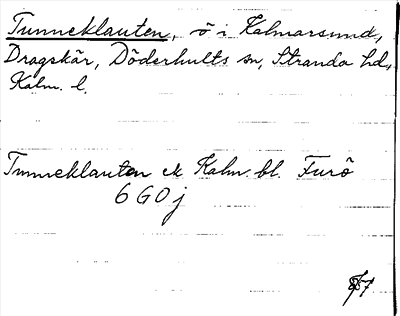 Tunneklauten, ö i Kalmarsund,
Dragskär, Döderhults sn, Stranda hd,
Kalm. l.
Tunneklauten ek Kalm. bl. Furö
6 G O j